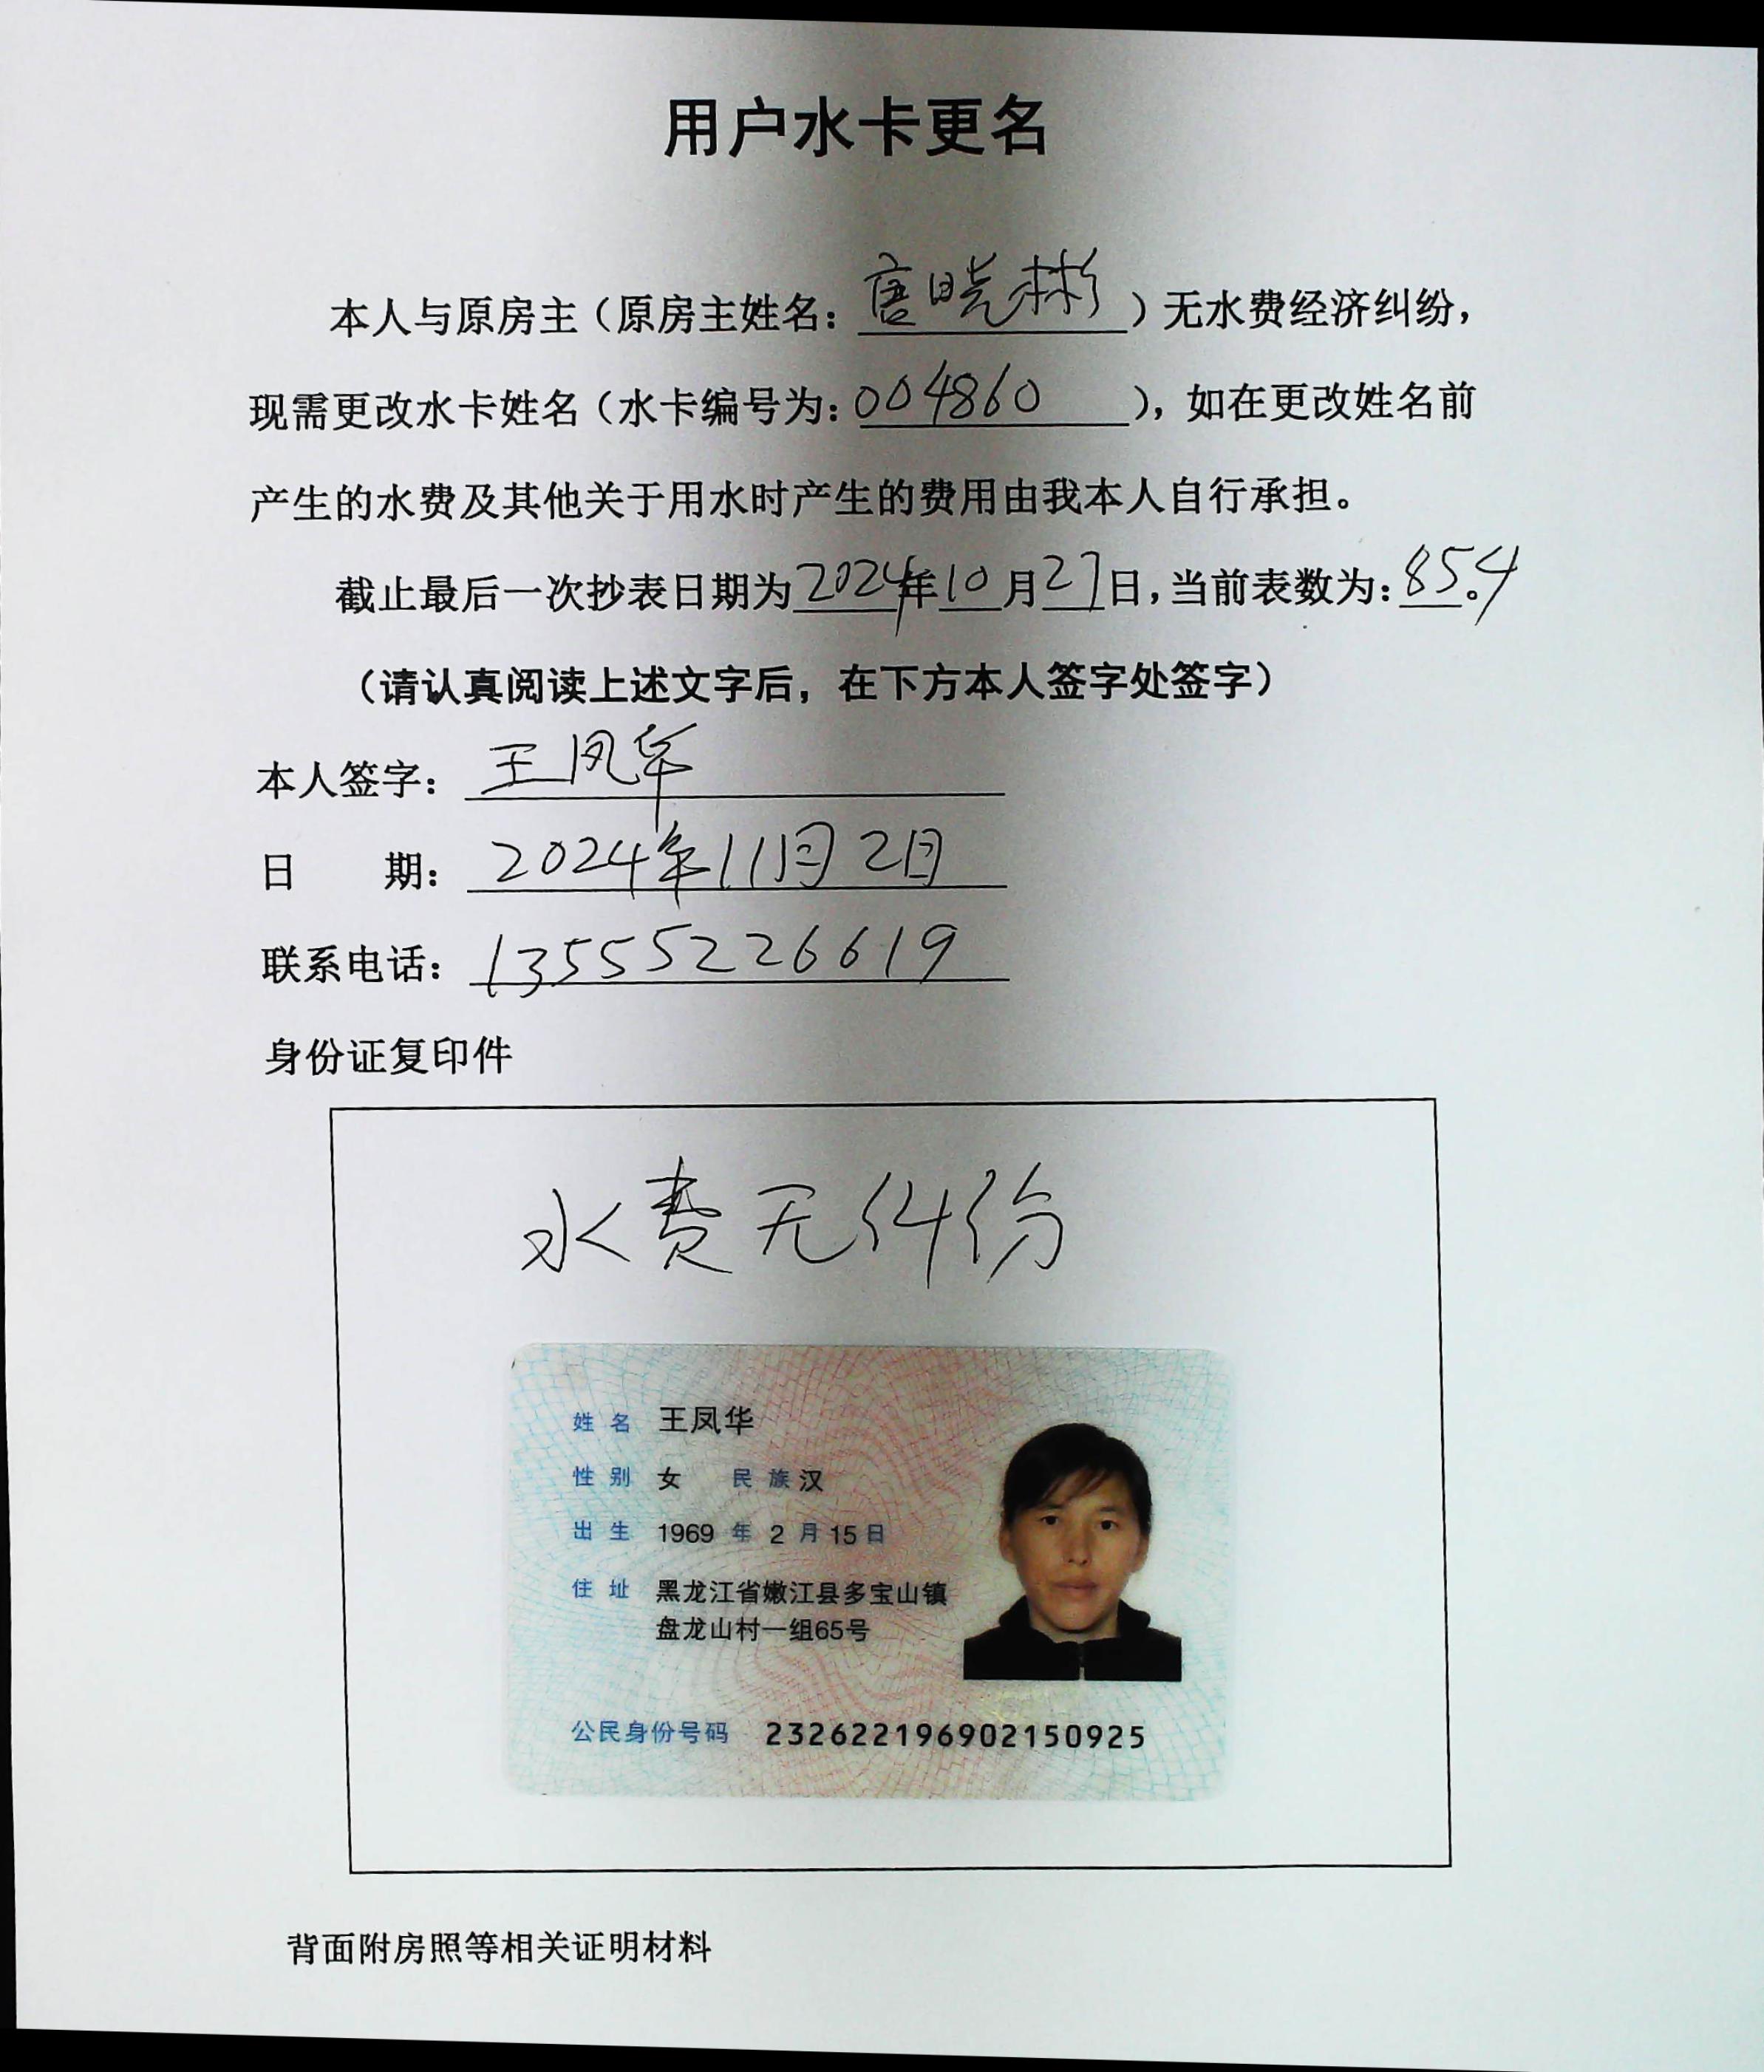 用户水卡更名
本人与原房主（原房主姓名：唐晓彬）无水费经济纠纷，
现需更改水卡姓名（水卡编号为：004860），如在更改姓名前
产生的水费及其他关于用水时产生的费用由我本人自行承担。
截止最后一次抄表日期为2024年10月27日，当前表数为：854。
（请认真阅读上述文字后，在下方本人签字处签字）
本人签字：王凤华
日 期：2024年11月2日
联系电话：13555226619
身份证复印件
水费无纠份
姓名 王凤华
性别 女 民族 汉
出生 1969 年 2 月 15 日
住址 黑龙江省嫩江县多宝山镇
盘龙山村一组65号
公民身份号码 232622196902150925
背面附房照等相关证明材料